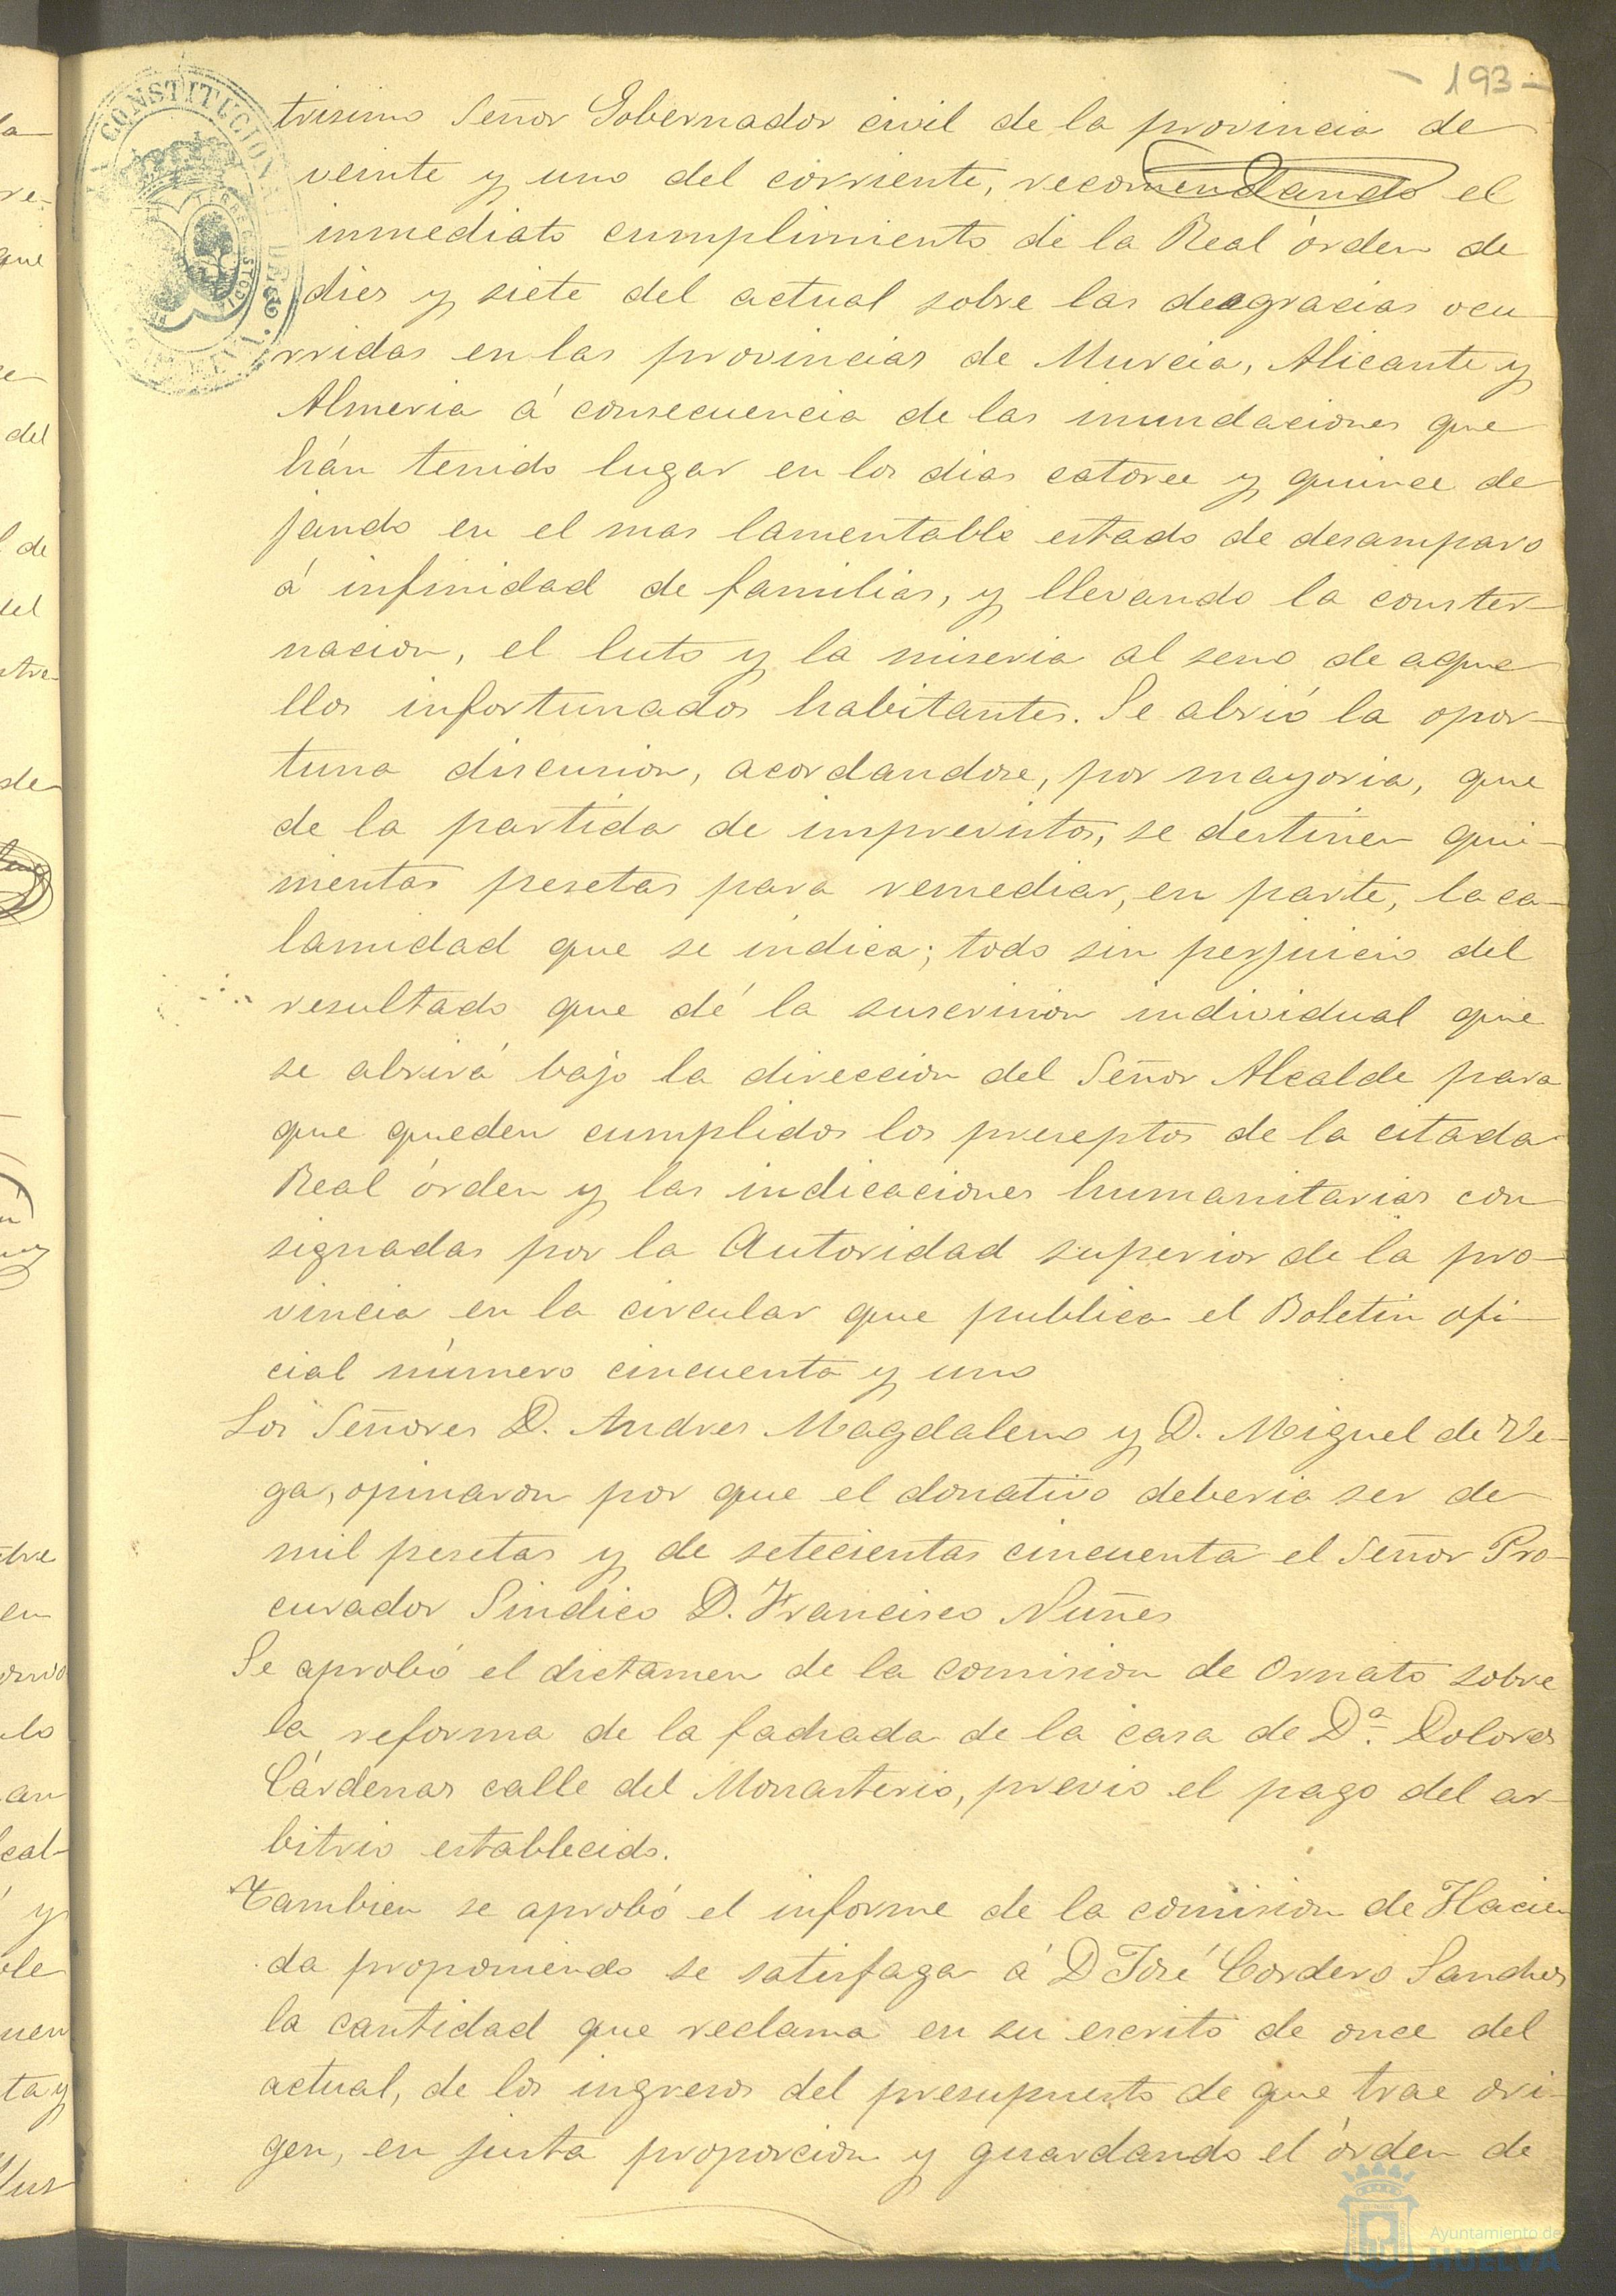 - 193 -
trisimo Señor Gobernador civil de la provincia de
veinte y uno del corriente, recomendando el
inmediato cumplimiento de la Real órden de
dies y siete del actual sobre las desgracias ocu
rridas en las provincias de Murcia, Alicante y
Almeria á consecuencia de las inundaciones que
hán tenido lugar en los dias catorce y quince de
jando en el mas lamentable estado de desamparo
á infinidad de familias, y llevando la conster-
nacion, el luto y la miseria al seno de aque
llos infortunados habitantes. Se abrió la opor-
tuna discusion, acordandose, por mayoria, que
de la partida de imprevistos, se destinen qui-
nientas pesetas para remediar, en parte, la ca-
lamidad que se indica; todo sin perjuicio del
resultado que dé la suscrision individual que
se abrirá bajo la direccion del Señor Alcalde para
que queden cumplidos los preseptos de la citada
Real órden y las indicaciones humanitarias con
signadas por la Autoridad superior de la pro-
vincia en la circular que publica el Boletin ofi-
cial número cincuenta y uno
Los Señores D. Andres Magdaleno y D. Miguel de Ve-
ga, opinaron por que el donativo deberia ser de
mil pesetas y de setecientas cincuenta el Señor Pro-
curador Sindico D. Francisco Nuñes
Se aprobó el dictamen de la comision de Ornato sobre
la reforma de la fachada de la casa de Dª. Dolores
Cárdenas calle del Monasterio, previo el pago del ar-
bitrio establecido.
Tambien se aprobó el informe de la comision de Hacien
da proponiendo se satisfaga á D José Cordero Sanches
la cantidad que reclama en su escrito de once del
actual, de los ingresos del presupuesto de que trae ori-
gen, en justa proporcion y guardando el órden de
Ayuntamiento de
HUELVA